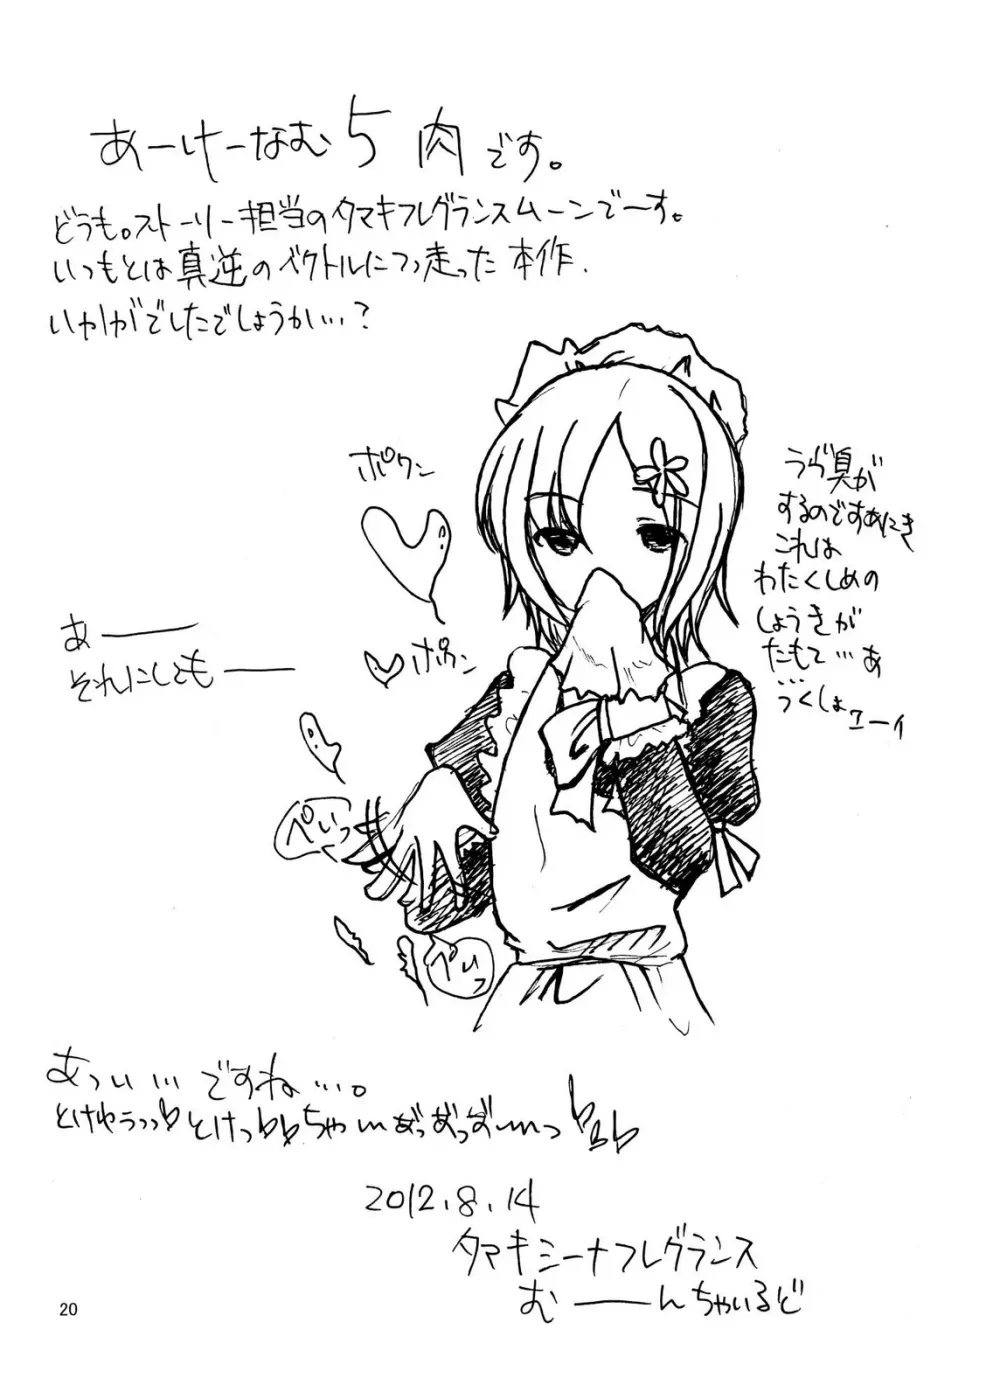 あーけーなむ5肉です。
どうも。ストーリー担当のタマキフレグランスムーンでーす。
いつもとは真逆のベクトルにつっ走った本作、
いかがでしたでしょうか…?
ポワン
うづ臭が
するのですあにき
これは
わたくしめの
しょうきが
たもて…あ
…
つくしょ
エーイ
あ――
それにしても――
ポワン
ぺいっ
ぺいっ
あつぃ…ですね…。
2012.8.14
タマキミーナフレグランス
む――んちゃいるど
20